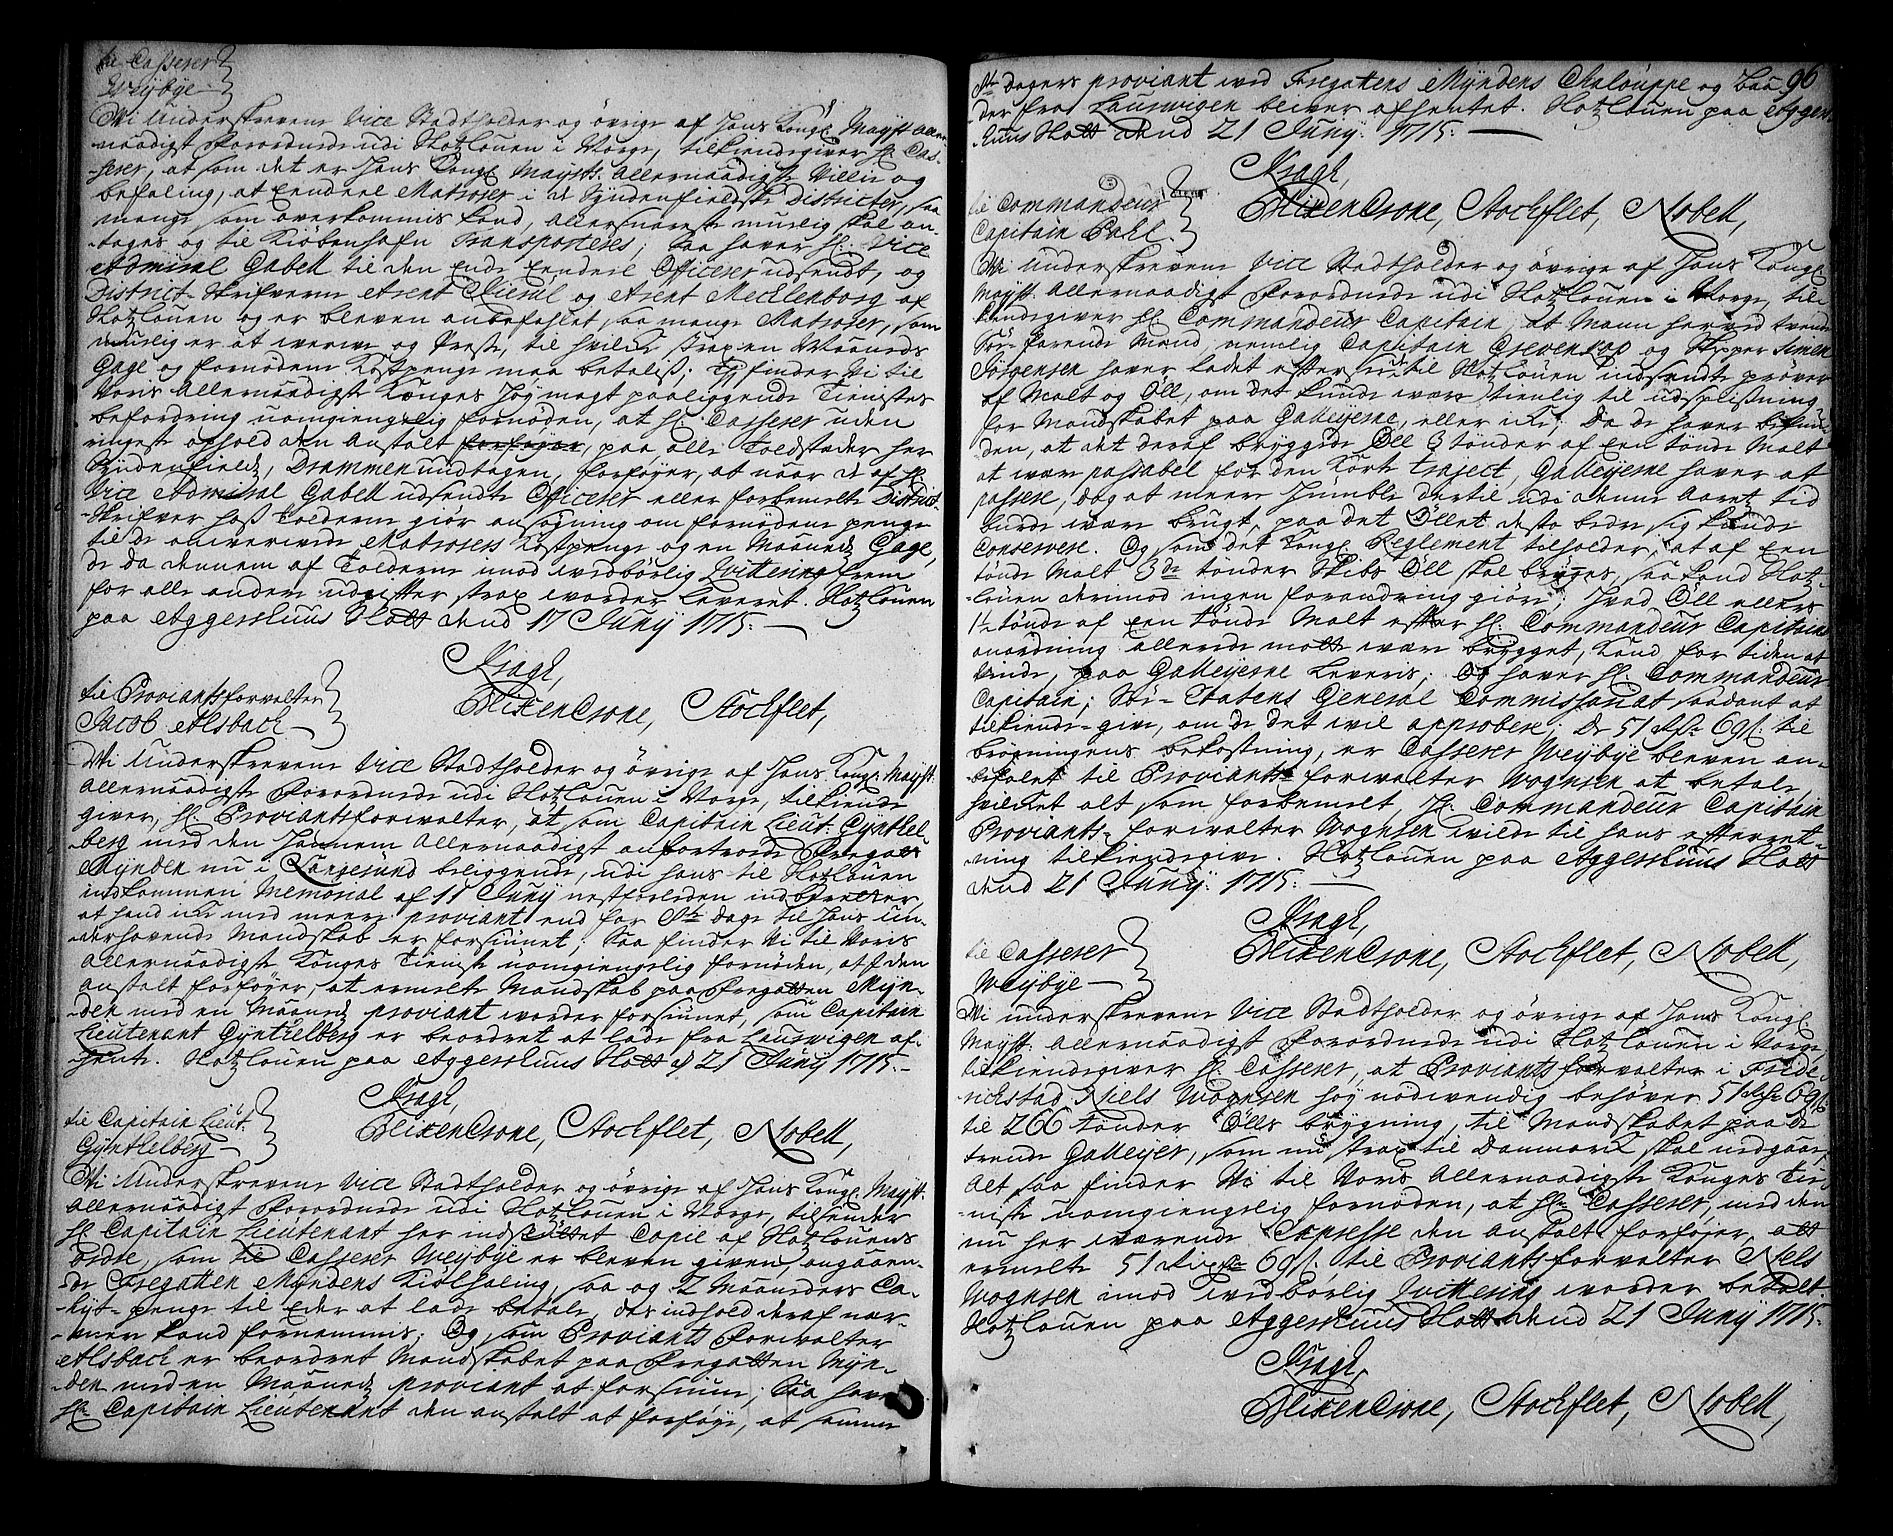 til Casserer
Weybye
Wi Underskrevene Vice Stadtholder og övrige af Hans Kongl. Mayst. Aller-
naadigst Forordnede udi Slotzlouen i Norge, tilkiendegiver Hr. Cas-
serer, at som det er Hans Kongl. Maysts. Allernaadigste Villie og
befaling, at Eendeel Matroser i de Syndenfieldske Districter, saa
mange som overkommis kand, allersnareste muelig skal an-
tages og til Kiöbenhafn Transporteres; Saa haver Hr. Vice
Admiral Gabell til den Ende Eendeel Officerer udsendt, og
District-Skrifverne Arent og Arent Mecklenborg af
Slotzlouen og er bleven anbefahlet, saa mange Matroser, som
mueelig er at werwe og Preste, til hvilke strax en Maaneds
Gage og fornöden Kostpenge maa betales; Thj finder Vi til
Voris Allernaadigste Konges Höj magt paaliggende Tienistes
befordring uomgiengelig fornöden, at Hr. Casserer uden
ringeste ophold den Anstalt forföyer, paa alle Toldstæder her
Syndenfields, Drammen undtagen, forföyer, at naar de af Hr.
Vice Admiral Gabell udsendte Officerer eller forbemelte District-
Skrifver hoss Tolderne giör ansögning om fornödene penge
til de antagene Matrosers Kostpenge og en Maaneds Gage,
de da dennem af Tolderne imod widbörlig Qvittering frem
for alle andre udgifter strax worder leveret. Slotzlouen
paa Aggershuus Slott dend 17 Junj 1715.
Kragh,
BlixenCrone, Stockflet,
til Proviantsforvalter
Jacob Alsback
Wi Underskrevene Vice Stadtholder og övrige af Hans Kongl. Mayst.
Allernaadigste Forordnede udi Slotzlouen i Norge, tilkiende-
giver, Hr. Proviantsforwalter, at som Capitain Lieut. Gyntel-
berg med den Hannem Allernaadigst anfortroede Fregatt
Mynden nu i Langesund beliggende, udi hans til Slotzlouen
indkommen Memorial af 11 Junij nestforleden indberetter,
at hand icke med meere proviant end for 8te dage til Hans Un-
derhavende Mandskab er forsiunet; Saa finder Vi til Voris
Allernaadigste Konges Tieniste uomgiengelig fornöden, at I den
anstalt forföyer, at ermelte Mandskab paa Fregatten Myn-
den med en Maaneds proviant worder forsiunet, som Capitain
Lieutenant Gyntelberg er beordret at lade fra Laurwigen af-
hente. Slotzlouen paa Aggershuus Slott d 21 Junij 1715.
Kragh,
BlixenCrone, Stockflet, Nobell,
til Capitain Lieut.
Gyntelberg
Wi Underskrevene Vice Stadtholder og övrige af Hans Kongl. Mayst.
Allernaadigst Forordnede udi Slotzlouen i Norge, tilsender
Hr. Capitain Lieutenant her indsluttet Copie af Slotzlouens
Ordre, som til Casserer Weybye er bleven given, angaaen-
de Fregatten Myndens Kiölhaling, saa og 2 Maaneders Ca-
hyt-penge til Eder at lade betale, des indhold deraf nær-
mere kand fornemmis; Og som Proviants Forwalter
Alsback er beordret Mandskabet paa Fregatten Myn-
den med en Maaneds proviant at forsiune; Saa haver
Hr. Capitain Lieutenant den anstalt at forföye, at samme
96
8te dagers proviant wed Fregattens Myndens Chalouppe og Baa-
der fra Laurwigen bliver afhentet. Slotzlouen paa Agger-
shuus Slott dend 21 Junij 1715.
Kragh,
BlixenCrone, Stockflet, Nobell,
til Commandeur
Capitain Pahl.
Wi Underskrevene Vice Stadtholder og övrige af Hans Kongl.
Mayst. Allernaadigst Forordnede udi Slotzlouen i Norge, til-
kiendegiver Hr. Commandeur Capitain, at Mann herved tvende
Söe-farende Mænd, nemlig Capitain og Skipper Simen
Sörensen haver ladet efter til Slotzlouen indsendte pröver
af Malt og Öll, om det kunde være tienlig til udspisning
for Mandskabet paa Galleyerne, eller icke; Da de haver befun-
den, at det deraf bryggede Öll 3 tönder af Een tönde Malt
at ware passabel for den Korte traject, Galleyerne haver at
passere, dog at meere Humble dertil udi denne Aaretz tid
burde ware brugt, paa det Öllet desto bedre sig kunde
Conservere. Og som det Kongl. Reglement tilholder, at af Een
tönde Malt 3de tönder Skibs Öll skal brygges, saa kand Slotz-
louen dermod ingen forandring giöre; Hvad Öll ellers
1½ tönde af Een tönde Malt efter Hr. Commandeur Capitains
anordning allerede motte ware brygget, kand for tiden at
winde, paa Galleyerne Leveris; Og haver Hr. Commandeur
Capitain, Söe-Etatens General Commissariat saadant at
tilkiende-give, om de det wil approbere; De 51 Rdr 69 s. til
brygningens bekostning, er Casserer Weybye bleven an-
befalet til Proviants-forwalter Wognsen at betale,
hvilket alt som forbemelt, Hr. Commandeur Capitain
Proviants-forwalter Wognsen wilde til hans efterret-
ning tilkiendegive. Slotzlouen paa Aggershuus Slott
dend 21 Junij 1715.
Kragh,
BlixenCrone, Stockflet, Nobell,
til Casserer
Weybye
Wi Underskrevene Vice Stadtholder og övrige af Hans Kongl.
Mayst. Allernaadigst Forordnede udi Slotzlouen i Norge,
tilkiendegiver Hr. Casserer, at Proviantsforvalter i Fride-
richstad Niels Wognsen höj nödwendig behöver 51 Rdr 69 s.
til 266 tönder Ölls brygning, til Mandskabet paa de
trende Galleyer, som nu strax til Danmark skal udgaae;
Alt saa finder Vi til Voris Allernaadigste Konges Tie-
niste uomgiengelig fornöden, at Hr. Casserer, med den
nu her wærende Expresse den anstalt forföyer, att
ermelte 51 Rdr 69 s. til Proviantsforvalter Niels
Wognsen imod widbörlig Qvittering worder betalt.
Slotzlouen paa Aggershuus Slott dend 21 Junij 1715.
Kragh,
BlixenCrone, Stockflet, Nobell,